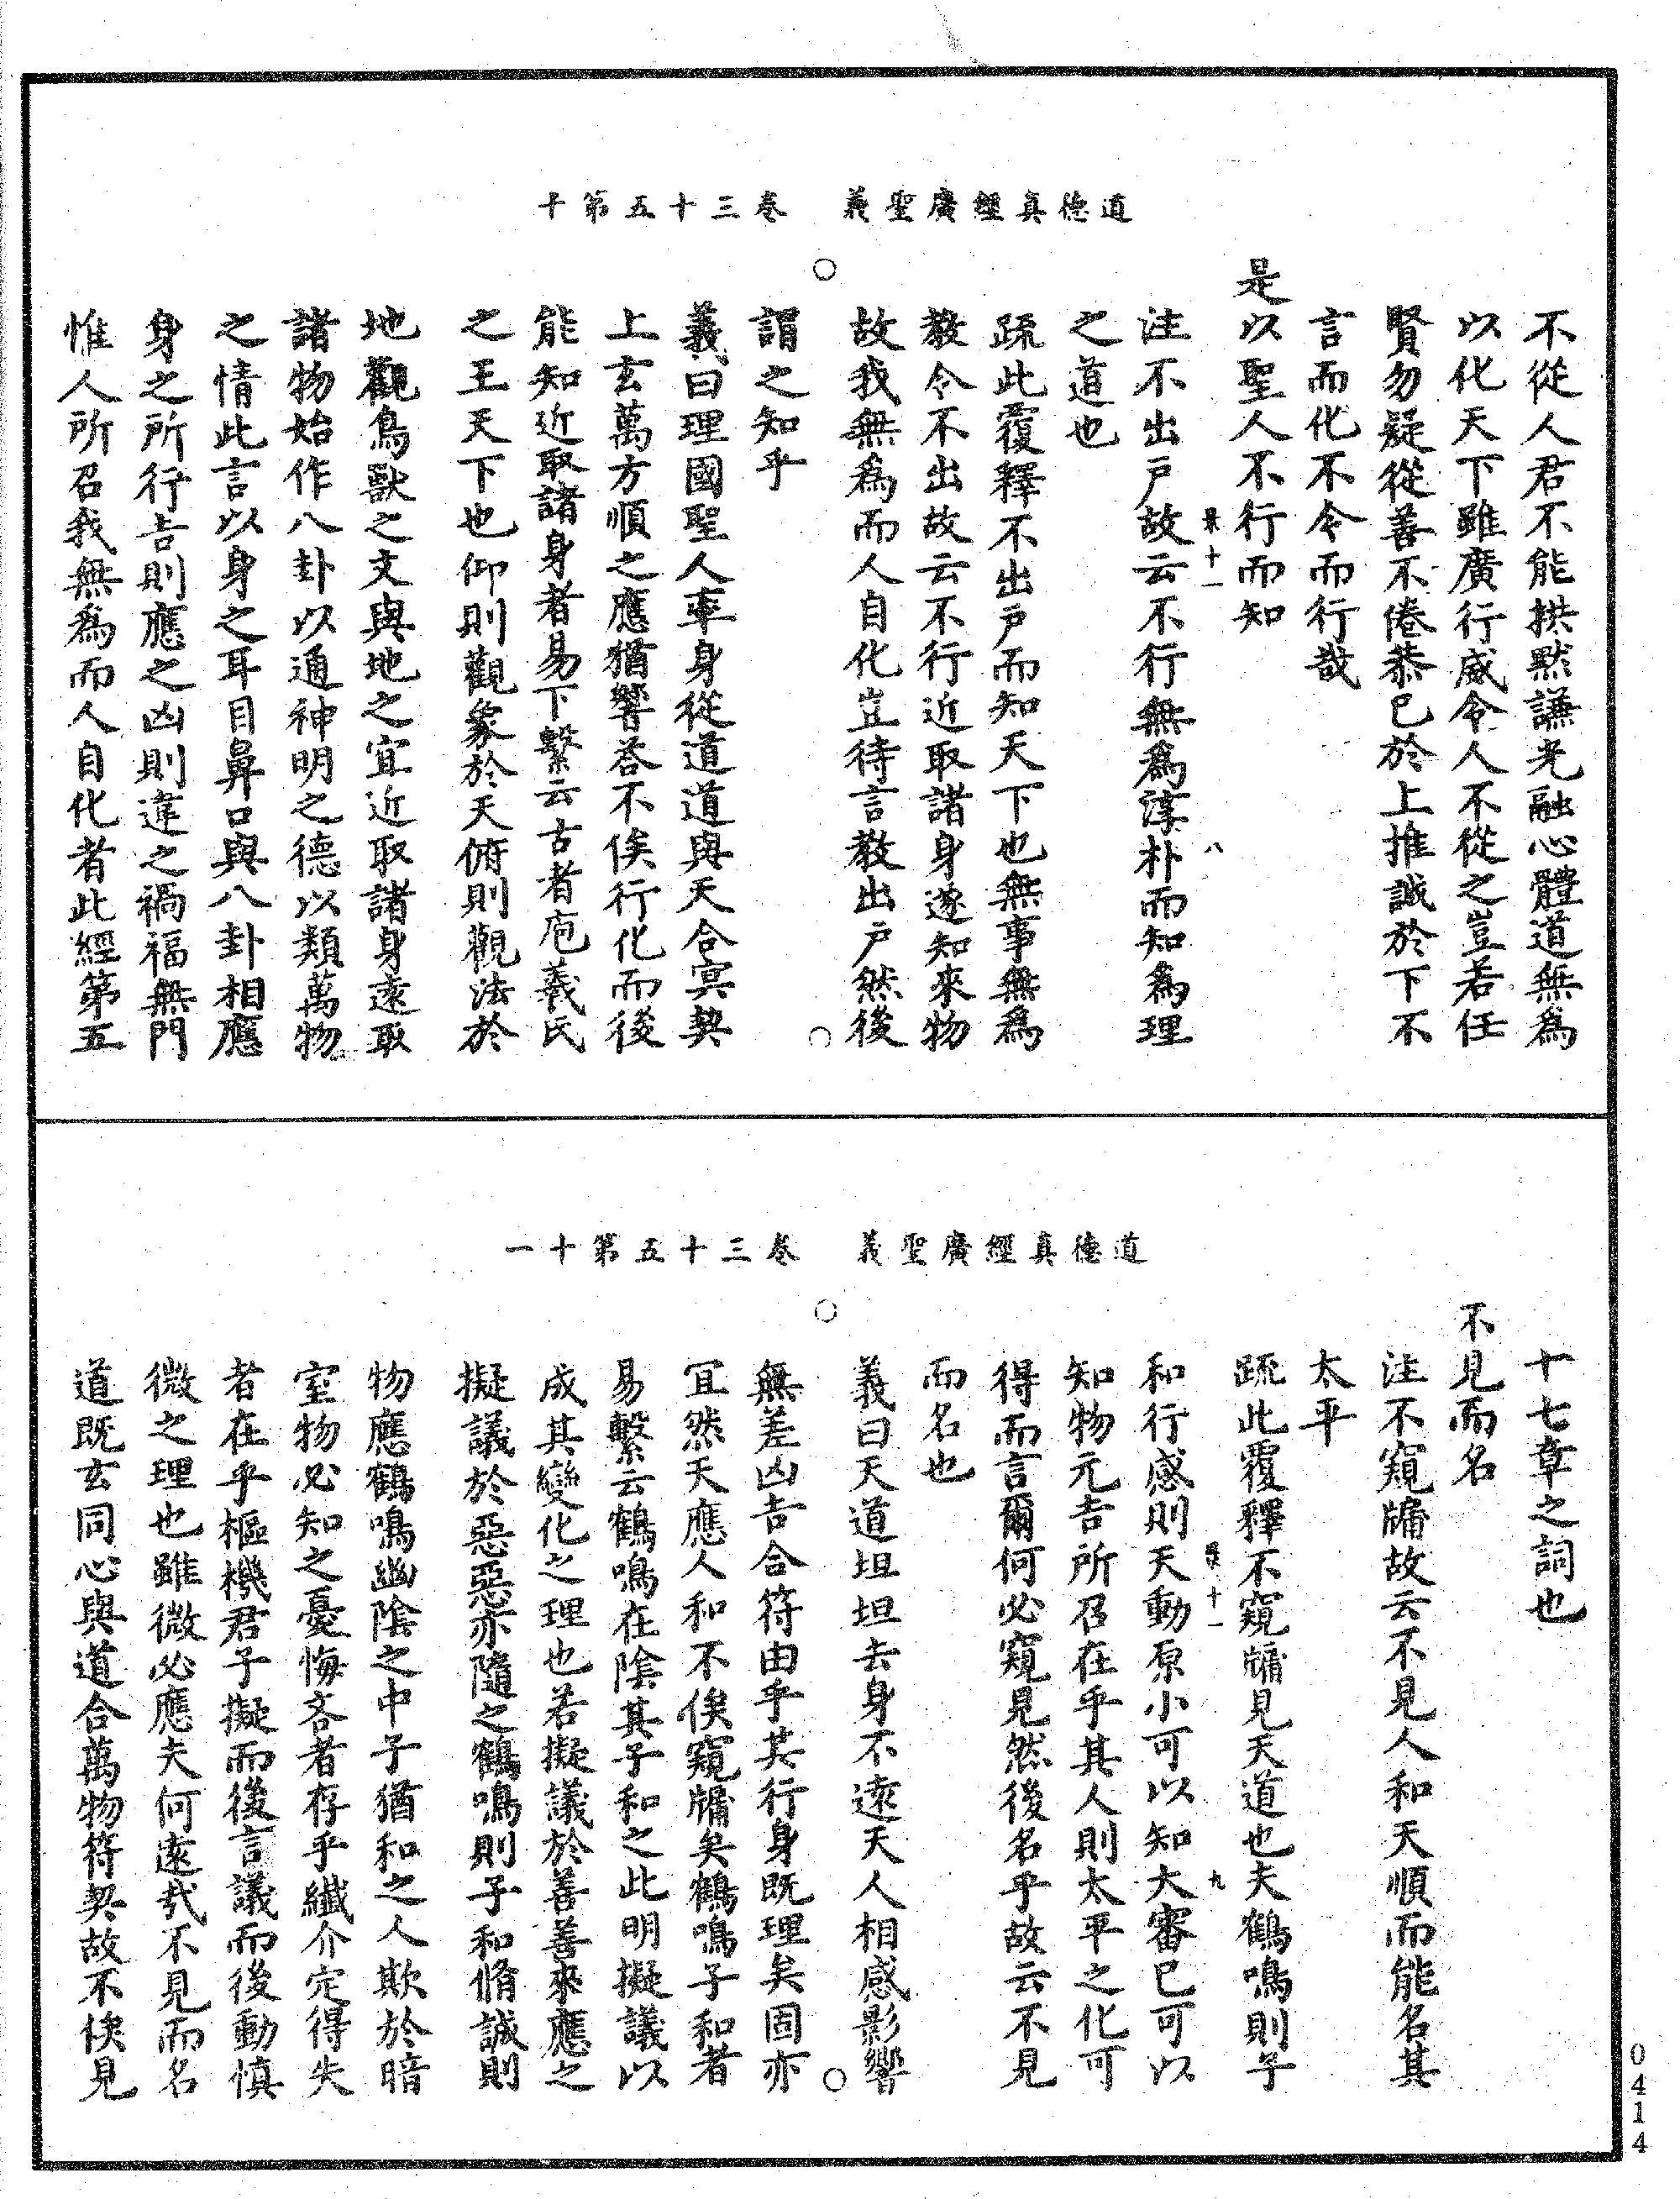 道德真經廣聖義　卷三十五第十
不從人君不能拱默謙光融心體道無為
以化天下雖廣行威令人不從之豈若任
賢勿疑從善不倦恭已於上推誠於下不
言而化不令而行哉
是以聖人不行而知
注不出戶故云不行無為淳朴而知為理
之道也
疏此覆釋不出戶而知天下也無事無為
教令不出故云不行近取諸身遂知來物
故我無為而人自化豈待言教出戶然後
謂之知乎
義曰理國聖人率身從道道與天合冥契
上玄萬方順之應猶響荅不俟行化而後
能知近取諸身者易下繫云古者庖羲氏
之王天下也仰則觀象於天俯則觀法於
地觀鳥獸之文與地之宜近取諸身遠取
諸物始作八卦以通神明之德以類萬物
之情此言以身之耳目鼻口與八卦相應
身之所行吉則應之凶則違之禍福無門
惟人所召我無為而人自化者此經第五
十一
八
道德真經廣聖義　卷三十五第十一
十七章之詞也
不見而名
注不窺牖故云不見人和天順而能名其
太平
疏此覆釋不窺牖見天道也夫鶴鳴則子
和行感則天動原小可以知大審已可以
知物元吉所召在乎其人則太平之化可
得而言爾何必窺見然後名乎故云不見
而名也
義曰天道坦坦去身不遠天人相感影響
無差凶吉合符由乎其行身既理矣固亦
宜然天應人和不俟窺牖矣鶴鳴子和者
易繫云鶴鳴在陰其子和之此明擬議以
成其變化之理也若擬議於善善來應之
擬議於惡惡亦隨之鶴鳴則子和脩誠則
物應鶴鳴幽陰之中子猶和之人欺於暗
室物必知之憂悔吝者存乎纖介定得失
者在乎樞機君子擬而後言議而後動慎
微之理也雖微必應夫何遠哉不見而名
道既玄同心與道合萬物符契故不俟見
十一
九
0414